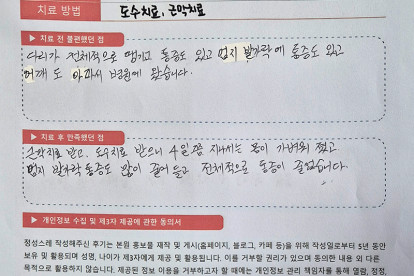 치료 방법 도수치료, 근막치료
▶ 치료 전 불편했던 점
다리가 전체적으로 땡기고 통증도 있고 엄지 발가락에 통증도 있고
어깨도 아파서 병원에 왔습니다.
▶ 치료 후 만족했던 점
근막치료 받고, 도수치료 받으니 4일쯤 지나서는 몸이 가벼워 졌고
엄지 발가락 통증도 많이 줄어 들고 전체적으로 통증이 줄었습니다.
▶ 개인정보 수집 및 제3자 제공에 관한 동의서
정성스레 작성해주신 후기는 본원 홍보물 제작 및 게시(홈페이지, 블로그, 카페 등)을 위해 작성일로부터 5년 동안
보유 및 활용되며 성명, 나이가 제3자에게 제공 및 활용됩니다. 이를 거부할 권리가 있으며 동의한 내용 외 다른
목적으로 활용하지 않습니다. 제공된 정보 이용을 거부하고자 할 때에는 개인정보 관리책임자를 통해 열람, 정정,